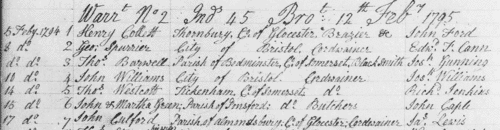 Warrt No 2 Ind 45 Bro't 12th Feby 1795
5 Feby 1794 1 Henry Collett Thornbury, C. of Glocester Brazier &c John Ford
8 do 2 Geo: Spurrier City of Bristol Cordwainer Edwd T. Cann
do do 3 Thos Barwell Parish of Bedminster, C. of Somerset, Black Smith Jos: Gunning
10 do 4 John Williams City of Bristol Cordwainer Jos: Williams
14 do 5 Thos Westcott Tickenham, C. of Somerset, do Richd Jenkins
15 do 6 John & Martha Green; Parish of do Butchers John Caple
17 do 7 John Parish of Almondsbury, C. of Glocester; Cordwainer Jas: Lewis